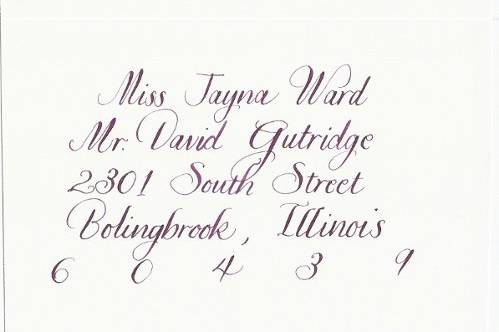 Miss Jayna Ward
Mr. David Gutridge
2301 South Street
Bolingbrook, Illinois
6 0 4 3 9